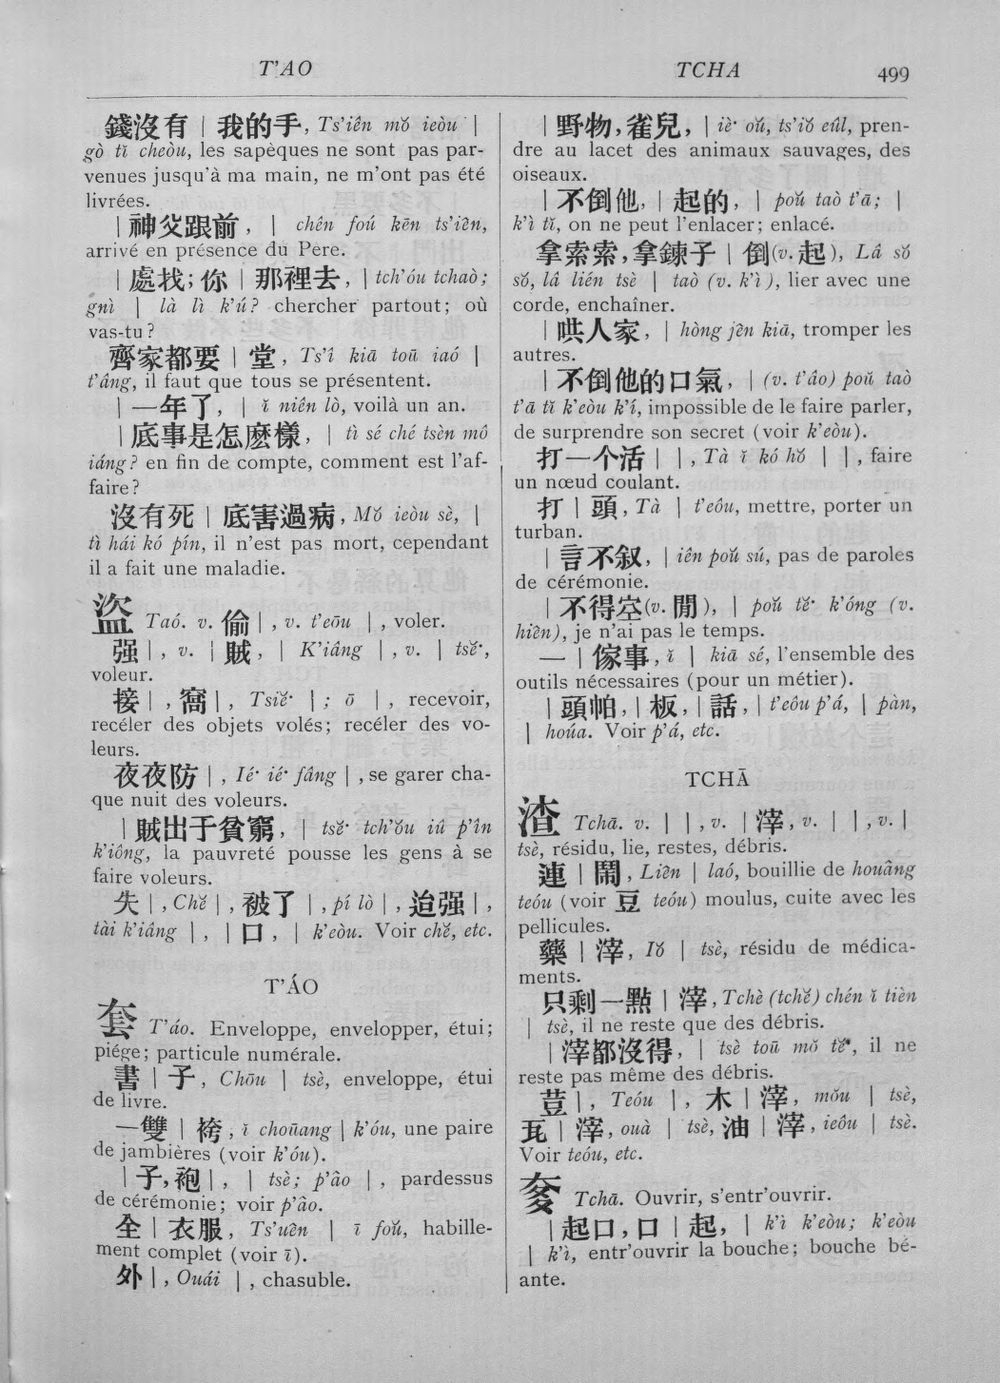 T'AO
TCHA
499
錢沒有 | 我的手, Ts'iên mǒ ieòu |
gò tǐ cheòu, les sapèques ne sont pas par-
venues jusqu'à ma main, ne m'ont pas été
livrées.
| 神父跟前, | chên foú kēn ts'iên,
arrivé en présence du Pere.
| 處找; 你 | 那裡去, | tch'óu tchaò;
gnì | là lì k'ú? chercher partout; où
vas-tu?
齊家都要 | 堂, Ts'î kiā toū iaó |
t'âng, il faut que tous se présentent.
| 一年了, | ǐ niên lò, voilà un an.
| 底事是怎麽樣, | tì sé ché tsèn mô
iáng? en fin de compte, comment est l'af-
faire?
沒有死 | 底害過病, Mǒ ieòu sè, |
tì hái kó pín, il n'est pas mort, cependant
il a fait une maladie.
盜 Taó. v. 偷 |, v. t'eōu |, voler.
强 |, v. | 賊, | K'iâng |, v. | tsě·,
voleur.
接 |, 窩 |, Tsiě· |; ō |, recevoir,
recéler des objets volés; recéler des vo-
leurs.
夜夜防 |, Ié· ié· fâng |, se garer cha-
que nuit des voleurs.
| 賊出于貧窮, | tsě· tch'ǒu iû p'în
k'iông, la pauvreté pousse les gens à se
faire voleurs.
失 |, Chě |, 被了 |, pí lò |, 迨强 |,
tài k'iâng |, | 口, | k'eòu. Voir chě, etc.
T'ÁO
套 T'áo. Enveloppe, envelopper, étui;
piége; particule numérale.
書 | 子, Chōu | tsè, enveloppe, étui
de livre.
一雙 | 袴, ǐ chouāng | k'óu, une paire
de jambières (voir k'óu).
| 子, 袍 |, | tsè; p'âo |, pardessus
de cérémonie; voir p'âo.
全 | 衣服, Ts'uên | ī foǔ, habille-
ment complet (voir ī).
外 |, Ouái |, chasuble.
| 野物, 雀兒, | iè· oǔ, ts'iǒ eûl, pren-
dre au lacet des animaux sauvages, des
oiseaux.
| 不倒他, | 起的, | poǔ taò t'ā; |
k'ì tǐ, on ne peut l'enlacer; enlacé.
拿索索, 拿鍊子 | 倒(v. 起), Lâ sǒ
sǒ, lâ lién tsè | taò (v. k'ì), lier avec une
corde, enchaîner.
| 哄人家, | hòng jên kiā, tromper les
autres.
| 不倒他的口氣, | (v. t'âo) poǔ taò
t'ā tǐ k'eòu k'í, impossible de le faire parler,
de surprendre son secret (voir k'eòu).
打一个活 | |, Tà ǐ kó hǒ | |, faire
un nœud coulant.
打 | 頭, Tà | t'eôu, mettre, porter un
turban.
| 言不叙, | iên poǔ sú, pas de paroles
de cérémonie.
| 不得空(v. 閒), | poǔ tě· k'óng (v.
hiên), je n'ai pas le temps.
一 | 傢事, ǐ | kiā sé, l'ensemble des
outils nécessaires (pour un métier).
| 頭帕, | 板, | 話, | t'eôu p'á, | pàn,
| hoúa. Voir p'á, etc.
TCHĀ
渣 Tchā. v. | |, v. | 滓, v. | |, v. |
tsè, résidu, lie, restes, débris.
連 | 鬧, Liên | laó, bouillie de houâng
teóu (voir 豆 teóu) moulus, cuite avec les
pellicules.
藥 | 滓, Iǒ | tsè, résidu de médica-
ments.
只剩一點 | 滓, Tchè (tchě) chén ǐ tièn
| tsè, il ne reste que des débris.
| 滓都沒得, | tsè toū mǒ tě·, il ne
reste pas même des débris.
荳 |, Teóu |, 木 | 滓, mǒu | tsè,
瓦 | 滓, ouà | tsè, 油 | 滓, ieôu | tsè.
Voir teóu, etc.
奓 Tchā. Ouvrir, s'entr'ouvrir.
| 起口, 口 | 起, | k'ì k'eòu; k'eòu
| k'ì, entr'ouvrir la bouche; bouche bé-
ante.